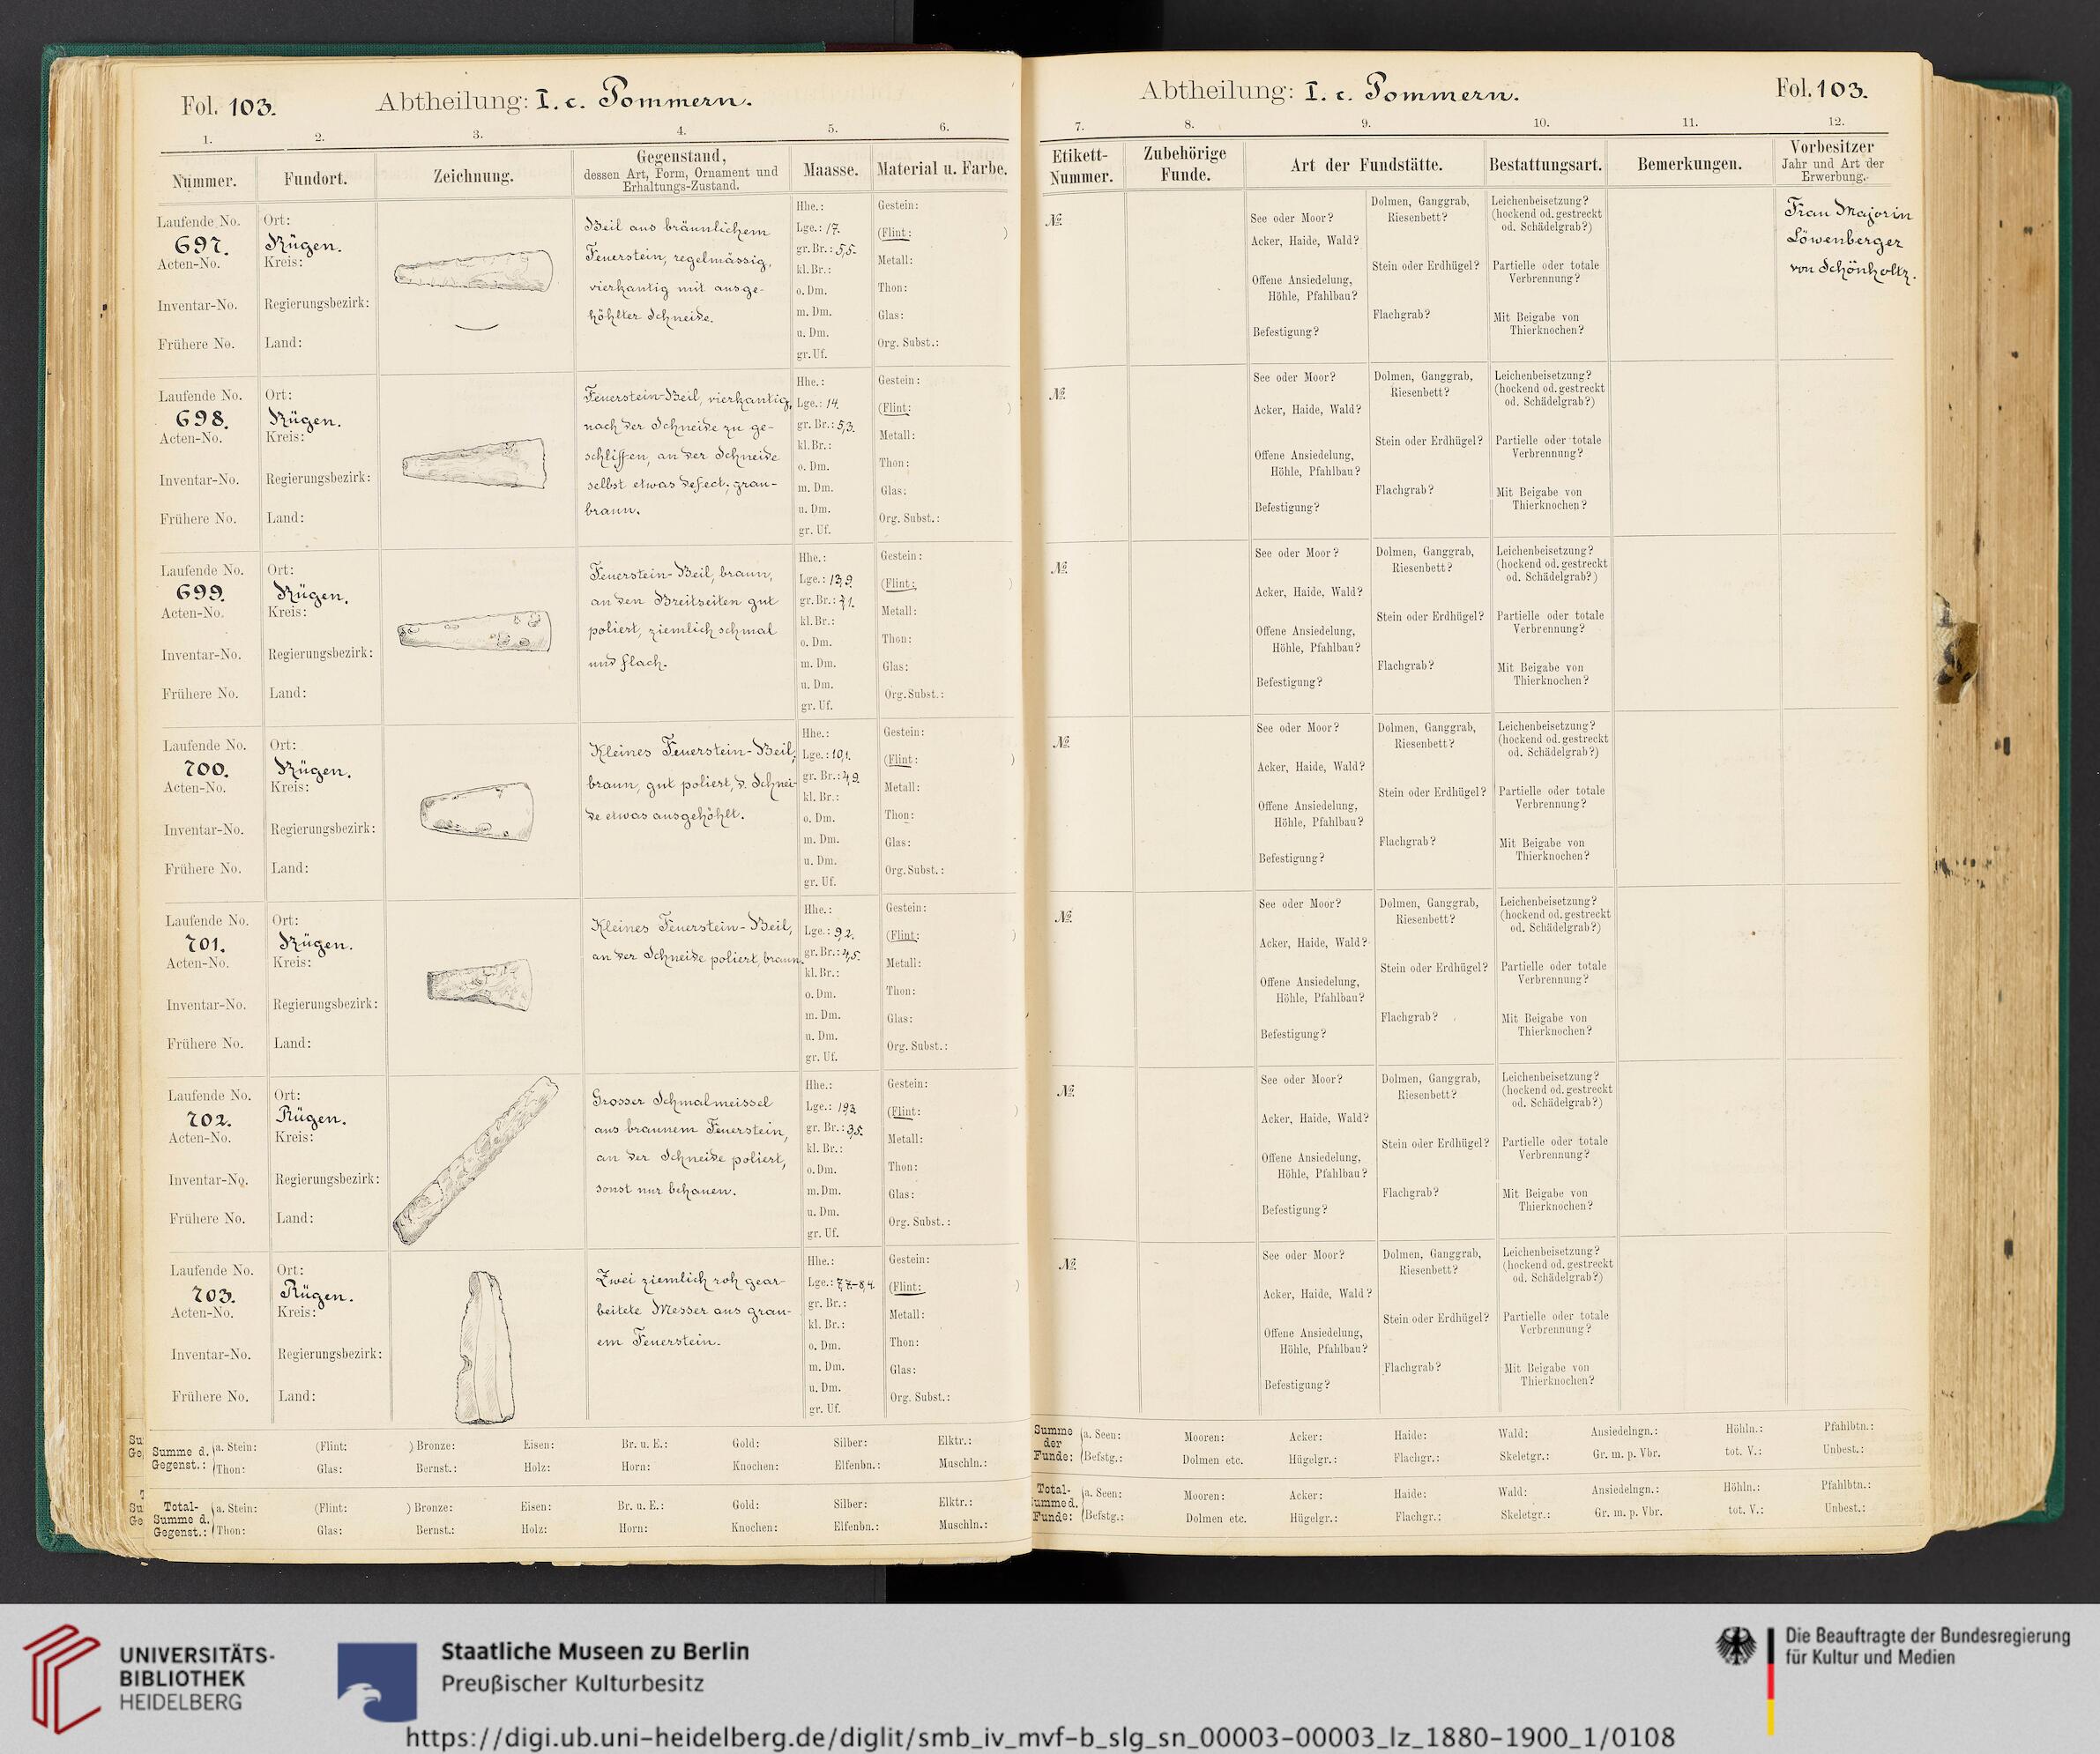 Fol. 103.
Abtheilung: I. c. Pommern.
1. 2. 3. 4. 5. 6.
Nummer.
Fundort.
Zeichnung.
Gegenstand,
dessen Art, Form, Ornament und
Erhaltungs-Zustand.
Maasse.
Material u. Farbe.
Laufende No.
697.
Acten-No.
Inventar-No.
Frühere No.
Ort:
Rügen.
Kreis:
Regierungsbezirk:
Land:
Beil aus bräunlichem
Feuerstein, regelmässig,
vierkantig mit ausge-
höhlter Schneide.
Hhe.:
Lge.: 17.
gr. Br.: 5,5.
kl. Br.:
o. Dm.
m. Dm.
u. Dm.
gr. Uf.
Gestein:
(Flint: )
Metall:
Thon:
Glas:
Org. Subst.:
Laufende No.
698.
Acten-No.
Inventar-No.
Frühere No.
Ort:
Rügen.
Kreis:
Regierungsbezirk:
Land:
Feuerstein-Beil, vierkantig,
nach der Schneide zu ge-
schliffen, an der Schneide
selbst etwas defect; grau-
braun.
Hhe.:
Lge.: 14.
gr. Br.: 5,3.
kl. Br.:
o. Dm.
m. Dm.
u. Dm.
gr. Uf.
Gestein:
(Flint: )
Metall:
Thon:
Glas:
Org. Subst.:
Laufende No.
699.
Acten-No.
Inventar-No.
Frühere No.
Ort:
Rügen.
Kreis:
Regierungsbezirk:
Land:
Feuerstein-Beil, braun,
an den Breitseiten gut
poliert, ziemlich schmal
und flach.
Hhe.:
Lge.: 13,9.
gr. Br.:
kl. Br.:
o. Dm.
m. Dm.
u. Dm.
gr. Uf.
Gestein:
(Flint: )
Metall:
Thon:
Glas:
Org. Subst.:
Laufende No.
700.
Acten-No.
Inventar-No.
Frühere No.
Ort:
Rügen.
Kreis:
Regierungsbezirk:
Land:
Kleines Feuerstein-Beil,
braun, gut poliert, d. Schnei-
de etwas ausgehöhlt.
Hhe.:
Lge.: 10,1.
gr. Br.: 4,9.
kl. Br.:
o. Dm.
m. Dm.
u. Dm.
gr. Uf.
Gestein:
(Flint: )
Metall:
Thon:
Glas:
Org. Subst.:
Laufende No.
701.
Acten-No.
Inventar-No.
Frühere No.
Ort:
Rügen.
Kreis:
Regierungsbezirk:
Land:
Kleines Feuerstein-Beil,
an der Schneide poliert, braun.
Hhe.:
Lge.: 9,2.
gr. Br.: 4,5.
kl. Br.:
o. Dm.
m. Dm.
u. Dm.
gr. Uf.
Gestein:
(Flint: )
Metall:
Thon:
Glas:
Org. Subst.:
Laufende No.
702.
Acten-No.
Inventar-No.
Frühere No.
Ort:
Rügen.
Kreis:
Regierungsbezirk:
Land:
Grosser Schmalmeissel
aus braunem Feuerstein,
an der Schneide poliert,
sonst nur behauen.
Hhe.:
Lge.: 19,3.
gr. Br.: 3,5.
kl. Br.:
o. Dm.
m. Dm.
u. Dm.
gr. Uf.
Gestein:
(Flint: )
Metall:
Thon:
Glas:
Org. Subst.:
Laufende No.
703.
Acten-No.
Inventar-No.
Frühere No.
Ort:
Rügen.
Kreis:
Regierungsbezirk:
Land:
Zwei ziemlich roh gear-
beitete Messer aus grau-
em Feuerstein.
Hhe.:
Lge.: 7,7-8,4.
gr. Br.:
kl. Br.:
o. Dm.
m. Dm.
u. Dm.
gr. Uf.
Gestein:
(Flint: )
Metall:
Thon:
Glas:
Org. Subst.:
Summe d. Gegenst.:
a. Stein: (Flint: ) Bronze: Eisen: Br. u. E.: Gold: Silber: Elktr.:
Thon: Glas: Bernst.: Holz: Horn: Knochen: Elfenbn.: Muschln.:
Total-Summe d. Gegenst.:
a. Stein: (Flint: ) Bronze: Eisen: Br. u. E.: Gold: Silber: Elktr.:
Thon: Glas: Bernst.: Holz: Horn: Knochen: Elfenbn.: Muschln.:
Abtheilung: I. c. Pommern.
Fol. 103.
7. 8. 9. 10. 11. 12.
Etikett-
Nummer.
Zubehörige
Funde.
Art der Fundstätte.
Bestattungsart.
Bemerkungen.
Vorbesitzer
Jahr und Art der
Erwerbung.
№
See oder Moor?
Acker, Haide, Wald?
Offene Ansiedelung,
Höhle, Pfahlbau?
Befestigung?
Dolmen, Ganggrab,
Riesenbett?
Stein oder Erdhügel?
Flachgrab?
Leichenbeisetzung?
(hockend od. gestreckt
od. Schädelgrab?)
Partielle oder totale
Verbrennung?
Mit Beigabe von
Thierknochen?
Frau Majorin
Löwenberger
von Schönholtz.
№
See oder Moor?
Acker, Haide, Wald?
Offene Ansiedelung,
Höhle, Pfahlbau?
Befestigung?
Dolmen, Ganggrab,
Riesenbett?
Stein oder Erdhügel?
Flachgrab?
Leichenbeisetzung?
(hockend od. gestreckt
od. Schädelgrab?)
Partielle oder totale
Verbrennung?
Mit Beigabe von
Thierknochen?
№
See oder Moor?
Acker, Haide, Wald?
Offene Ansiedelung,
Höhle, Pfahlbau?
Befestigung?
Dolmen, Ganggrab,
Riesenbett?
Stein oder Erdhügel?
Flachgrab?
Leichenbeisetzung?
(hockend od. gestreckt
od. Schädelgrab?)
Partielle oder totale
Verbrennung?
Mit Beigabe von
Thierknochen?
№
See oder Moor?
Acker, Haide, Wald?
Offene Ansiedelung,
Höhle, Pfahlbau?
Befestigung?
Dolmen, Ganggrab,
Riesenbett?
Stein oder Erdhügel?
Flachgrab?
Leichenbeisetzung?
(hockend od. gestreckt
od. Schädelgrab?)
Partielle oder totale
Verbrennung?
Mit Beigabe von
Thierknochen?
№
See oder Moor?
Acker, Haide, Wald?
Offene Ansiedelung,
Höhle, Pfahlbau?
Befestigung?
Dolmen, Ganggrab,
Riesenbett?
Stein oder Erdhügel?
Flachgrab?
Leichenbeisetzung?
(hockend od. gestreckt
od. Schädelgrab?)
Partielle oder totale
Verbrennung?
Mit Beigabe von
Thierknochen?
№
See oder Moor?
Acker, Haide, Wald?
Offene Ansiedelung,
Höhle, Pfahlbau?
Befestigung?
Dolmen, Ganggrab,
Riesenbett?
Stein oder Erdhügel?
Flachgrab?
Leichenbeisetzung?
(hockend od. gestreckt
od. Schädelgrab?)
Partielle oder totale
Verbrennung?
Mit Beigabe von
Thierknochen?
№
See oder Moor?
Acker, Haide, Wald?
Offene Ansiedelung,
Höhle, Pfahlbau?
Befestigung?
Dolmen, Ganggrab,
Riesenbett?
Stein oder Erdhügel?
Flachgrab?
Leichenbeisetzung?
(hockend od. gestreckt
od. Schädelgrab?)
Partielle oder totale
Verbrennung?
Mit Beigabe von
Thierknochen?
Summe der Funde:
a. Seen: Mooren: Acker: Haide: Wald: Ansiedelngn.: Höhln.: Pfahlbtn.:
Befstg.: Dolmen etc. Hügelgr.: Flachgr.: Skeletgr.: Gr. m. p. Vbr. tot. V.: Unbest.:
Total-Summe d. Funde:
a. Seen: Mooren: Acker: Haide: Wald: Ansiedelngn.: Höhln.: Pfahlbtn.:
Befstg.: Dolmen etc. Hügelgr.: Flachgr.: Skeletgr.: Gr. m. p. Vbr. tot. V.: Unbest.:
UNIVERSITÄTS-
BIBLIOTHEK
HEIDELBERG
Staatliche Museen zu Berlin
Preußischer Kulturbesitz
Die Beauftragte der Bundesregierung
für Kultur und Medien
https://digi.ub.uni-heidelberg.de/diglit/smb_iv_mvf-b_slg_sn_00003-00003_lz_1880-1900_1/0108